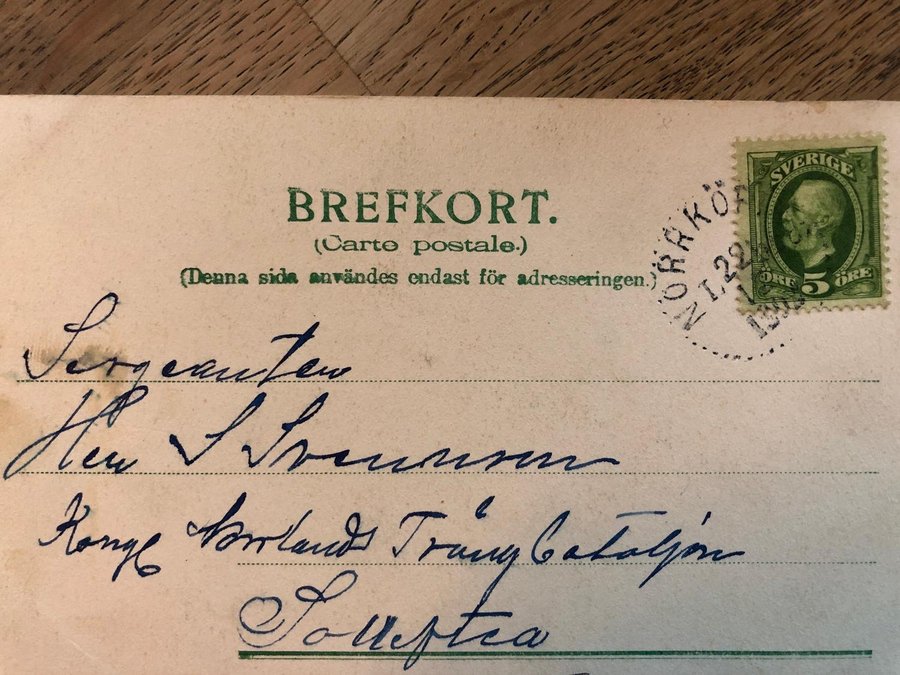 BREFKORT.
(Carte postale.)
(Denna sida användes endast för adresseringen.)
SVERIGE
ÖRE 5 ÖRE
NORRKÖP
1903
Sergeanten
Herr S Svensson
Kongl Norrlands Trängbataljon
Sollefteå